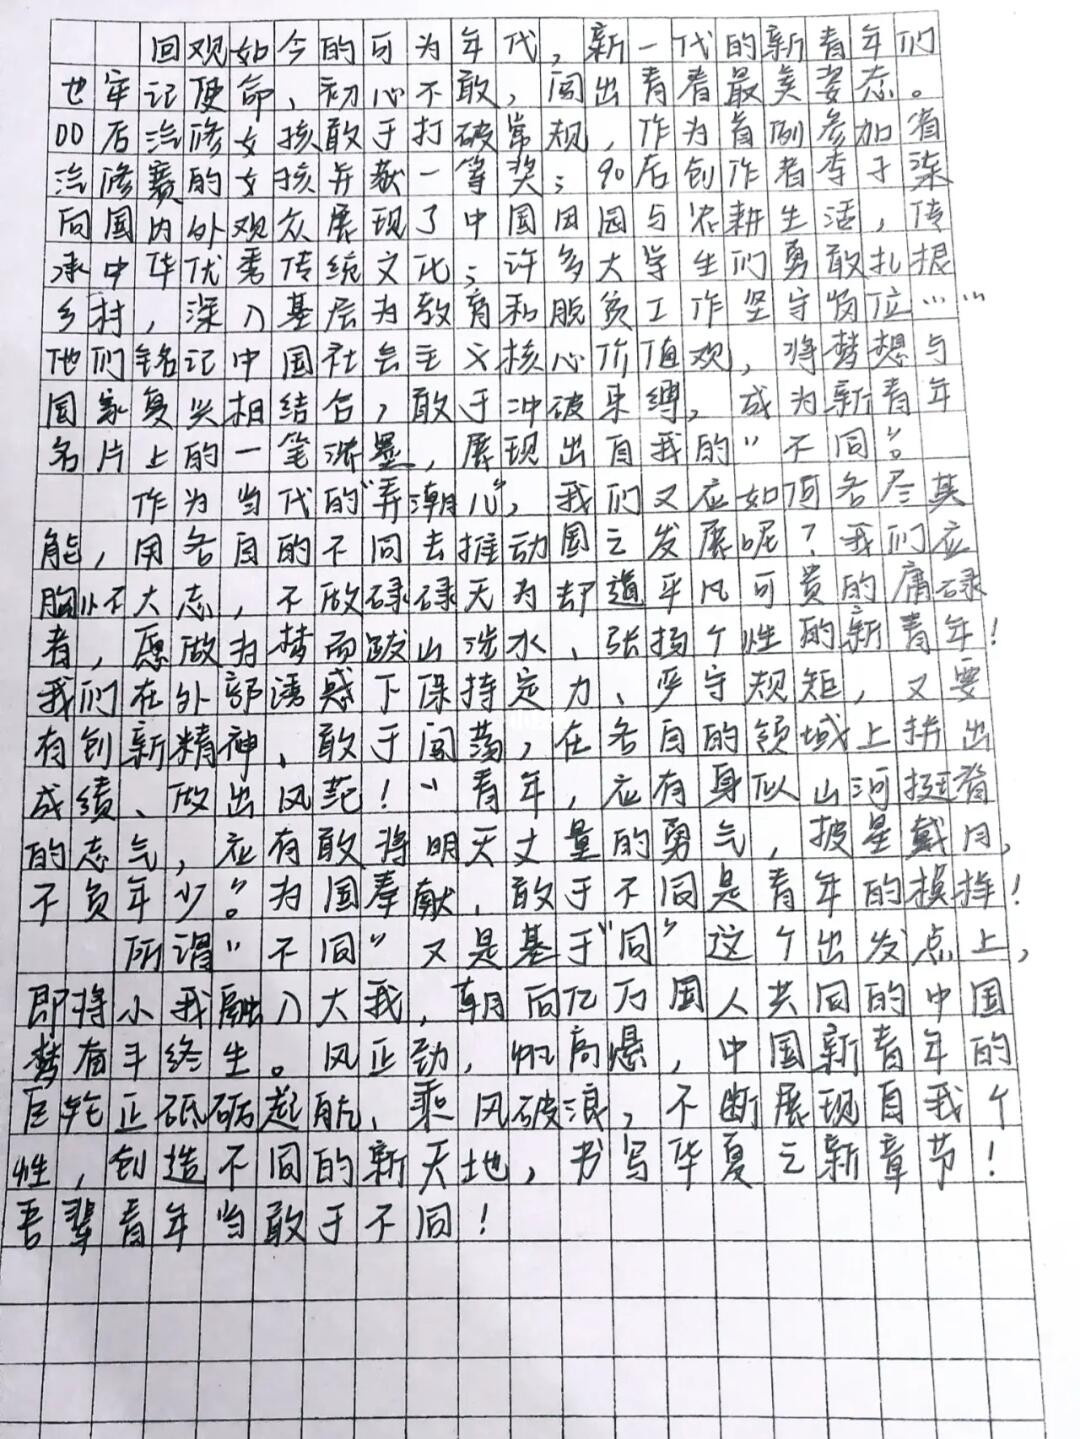 回观如今的可为年代，新一代的新青年们
也牢记使命，初心不敢，闯出青春最美姿态。
00后汽修女孩敢于打破常规，作为首例参加省
汽修赛的女孩并获一等奖；90后创作者李子柒
向国内外观众展现了中国田园与农耕生活，传
承中华优秀传统文化；许多大学生们勇敢扎根
乡村，深入基层为教育和脱贫工作坚守岗位……
他们铭记中国社会主义核心价值观，将梦想与
国家复兴相结合，敢于冲破束缚，成为新青年
名片上的一笔浓墨，展现出自我的“不同”。
作为当代的“弄潮儿”，我们又应如何各尽其
能，用各自的不同去推动国之发展呢？我们应
胸怀大志，不做碌碌无为却道平凡可贵的庸碌
者，愿做为梦而跋山涉水、张扬个性的新青年！
我们在外部诱惑下保持定力、严守规矩，又要
有创新精神、敢于闯荡，在各自的领域上拼出
成绩、做出风范！“青年，应有身似山河挺脊
的志气，应有敢将明天丈量的勇气，披星戴月，
不负年少。”为国奉献，敢于不同是青年的模样！
所谓“不同”又是基于“同”这个出发点上，
即将小我融入大我，朝向亿万国人共同的中国
梦奋斗终生。风正劲，帆高悬，中国新青年的
巨轮正砥砺起航、乘风破浪，不断展现自我个
性，创造不同的新天地，书写华夏之新章节！
吾辈青年当敢于不同！